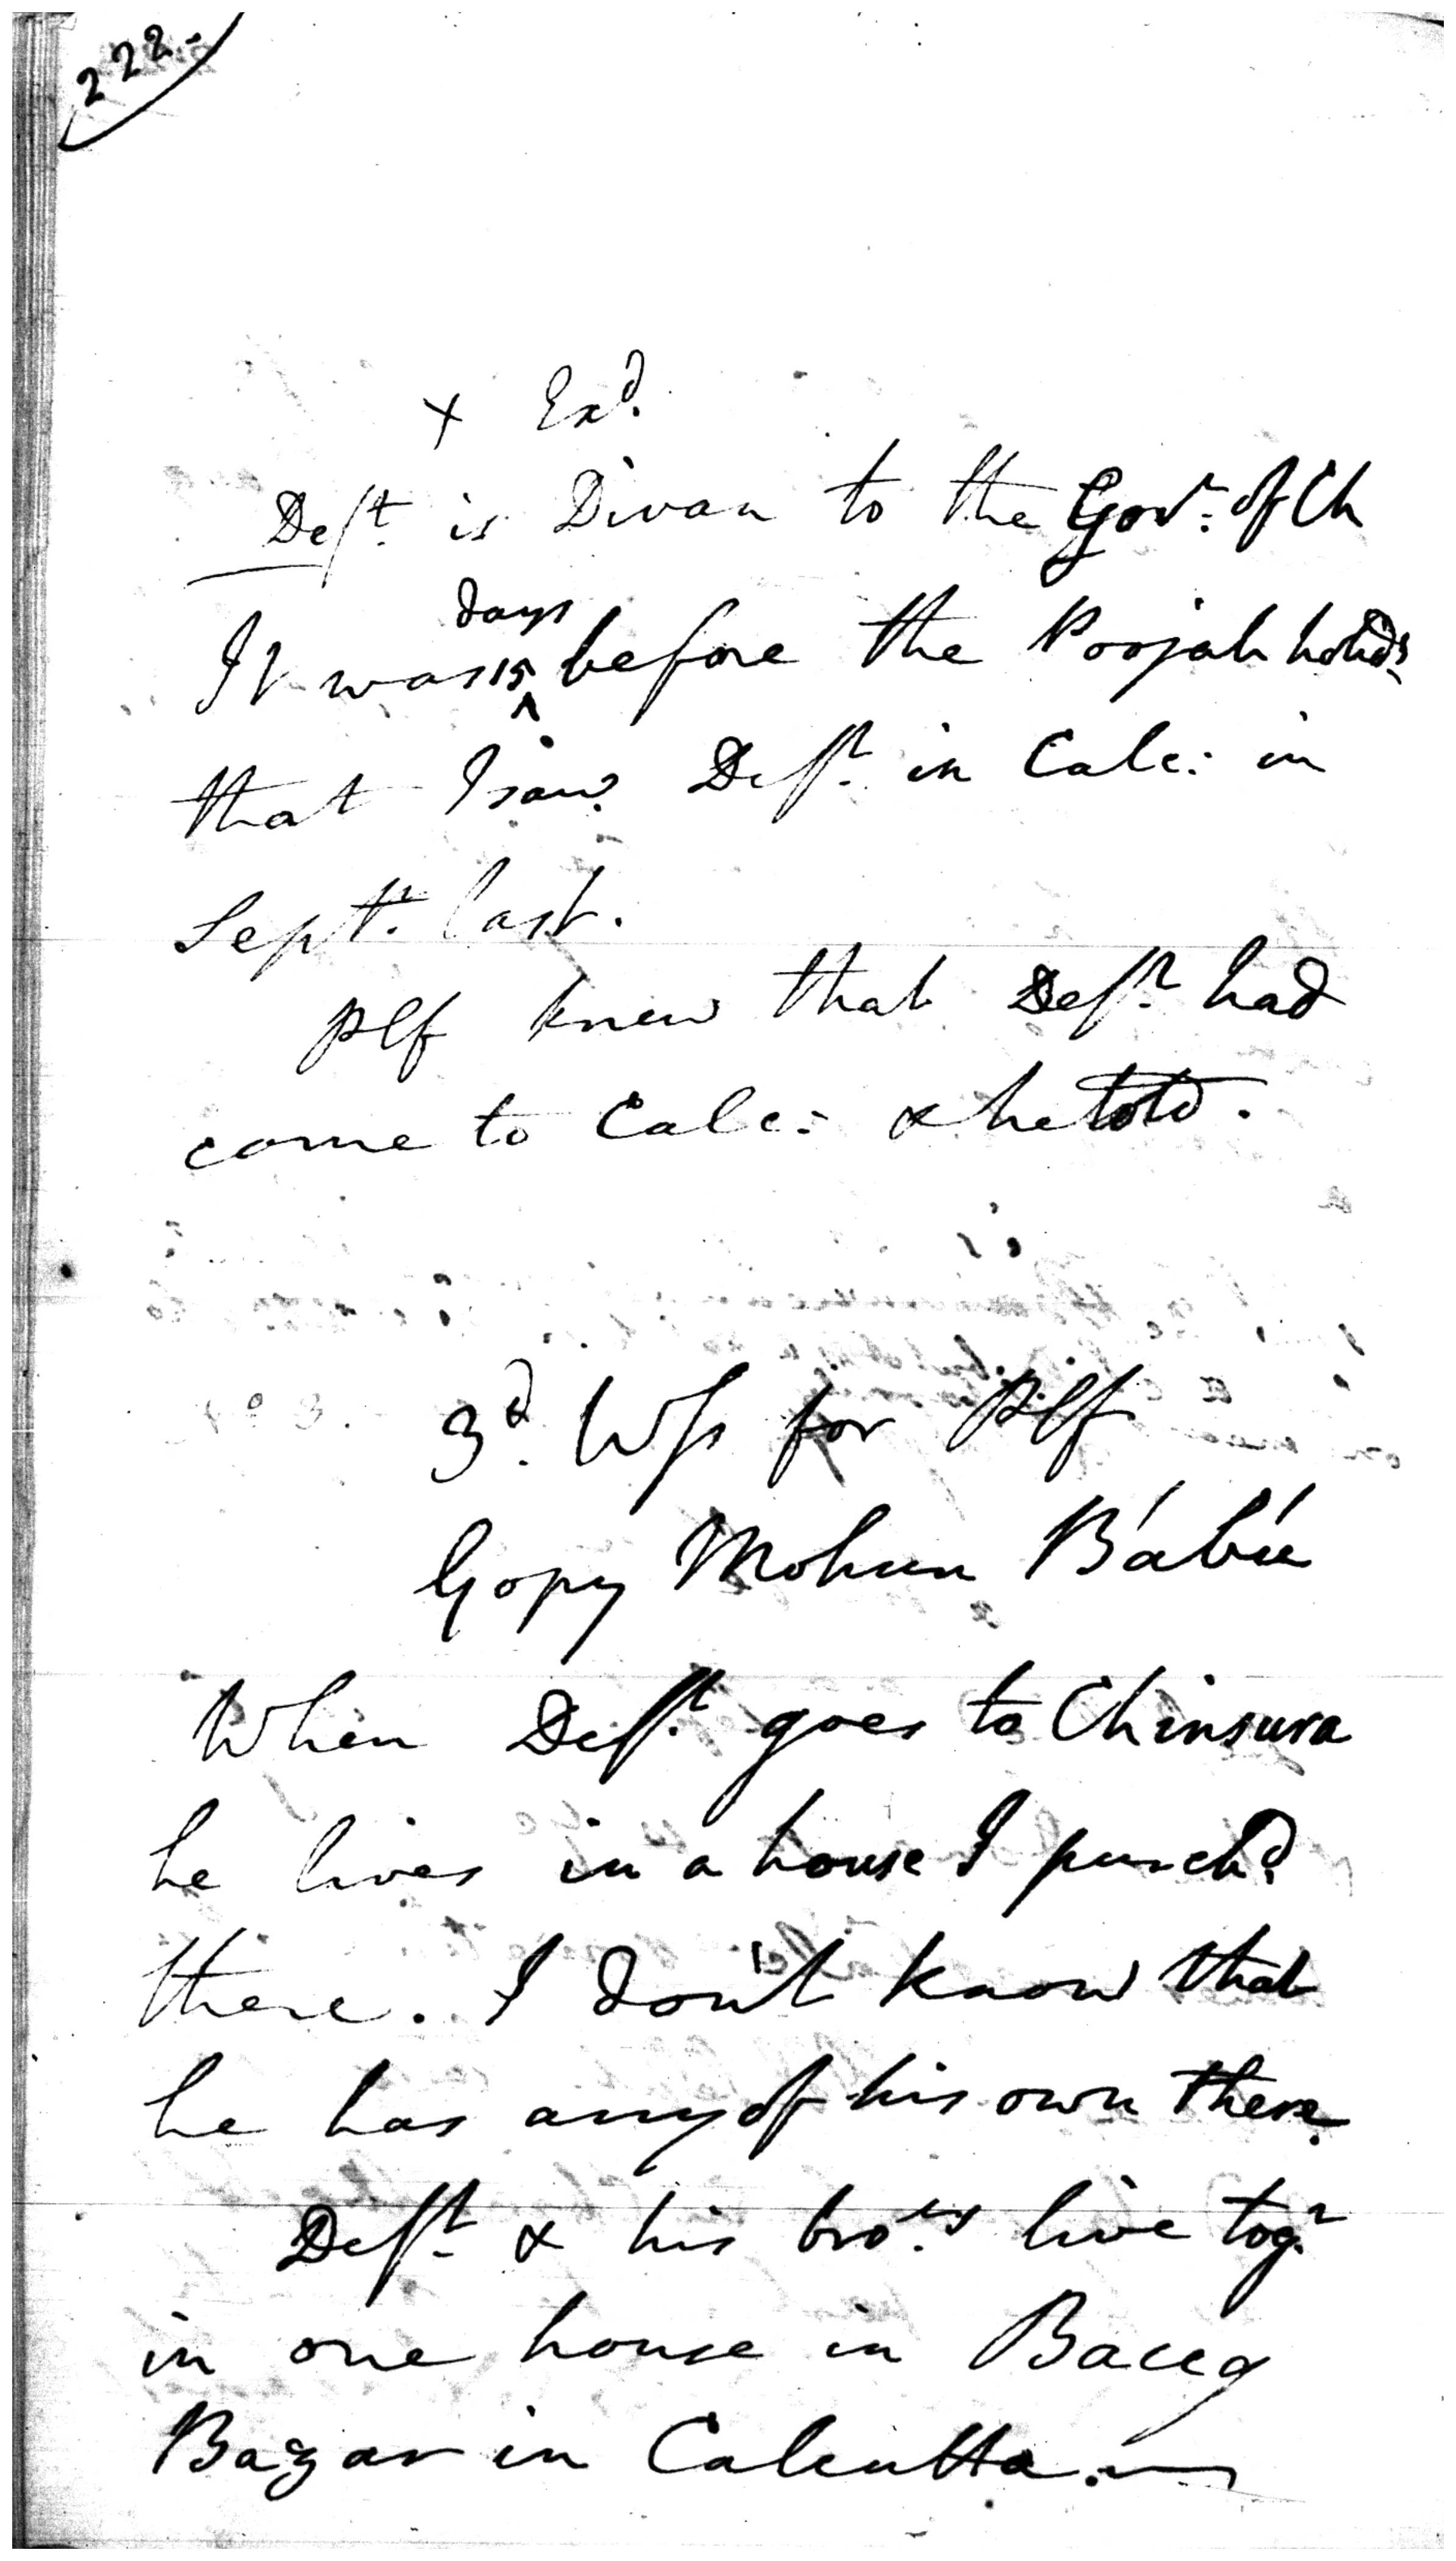 222.
x Exd.
Deft. is Divan to the Govr. of Ch
days
It was 15 before the Poojah holids.
that I saw Deft. in Calc: in
Septr. last.
Plf knew that Deft. had
come to Calc: & he told.
3d. Wss for Plf
Gopy Mohun Bábú
When Deft. goes to Chinsura
he lives in a house I purchd.
there. I don't know that
he has any of his own there.
Deft. & his bro.rs live togr.
in one house in
Bazar in Calcutta.